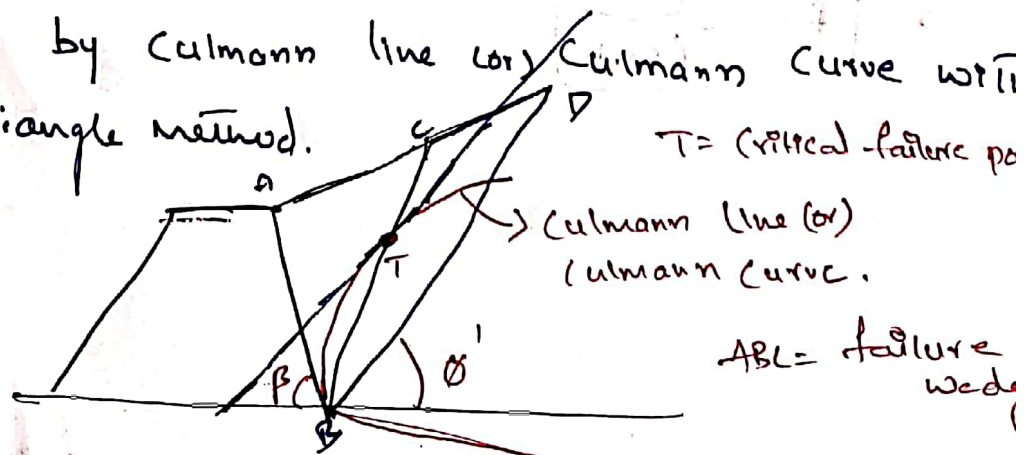 by Culmann line (or) Culmann Curve with
iangle method.
D
C
T= Critical failure po
A
→ Culmann line (or)
Culmann Curve.
T
ABC= failure
wed
β
φ'
B